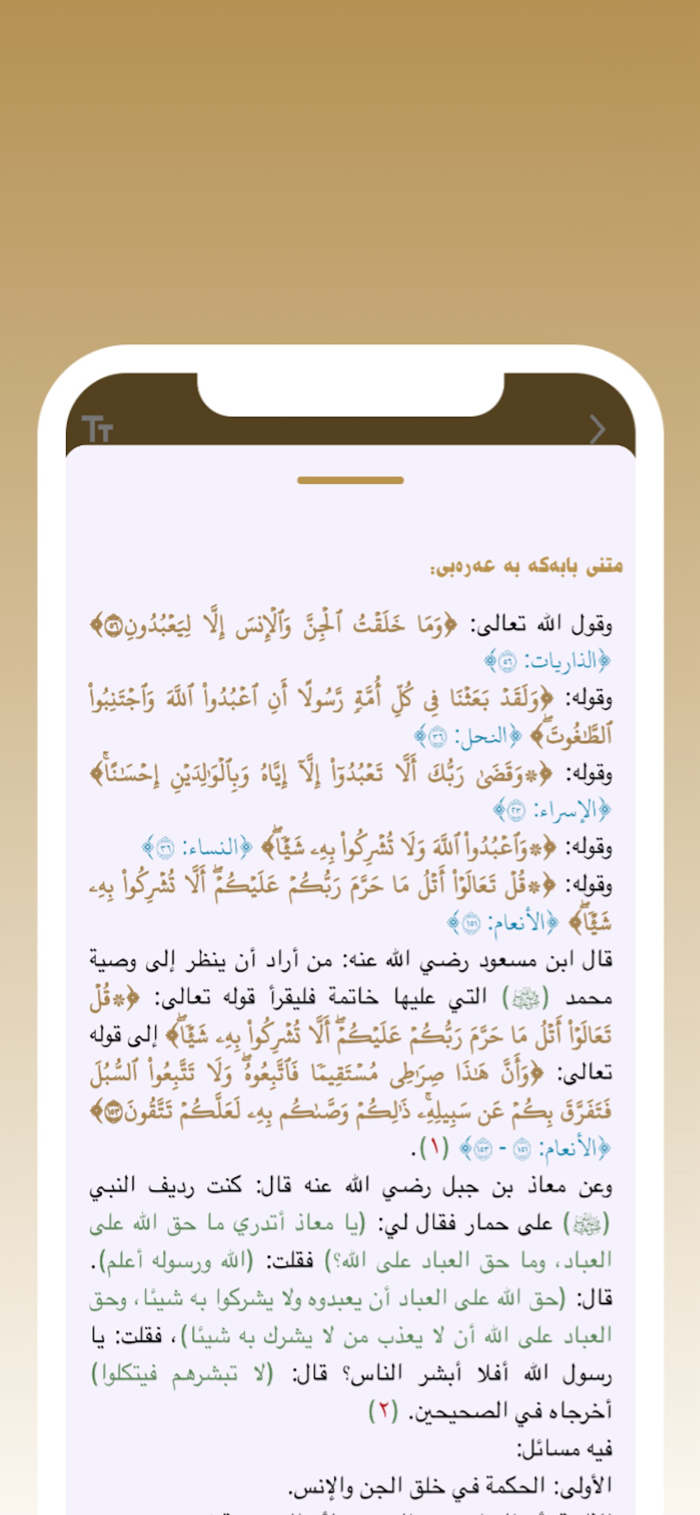 TT
متنی بابەکە بە عەرەبی:
وقول الله تعالى: ﴿وَمَا خَلَقْتُ ٱلْجِنَّ وَٱلْإِنسَ إِلَّا لِيَعْبُدُونِ۝٥٦﴾
﴿الذاريات: ٥٦﴾
وقوله: ﴿وَلَقَدْ بَعَثْنَا فِى كُلِّ أُمَّةٍ رَّسُولًا أَنِ ٱعْبُدُوا۟ ٱللَّهَ وَٱجْتَنِبُوا۟
ٱلطَّـٰغُوتَۖ﴾ ﴿النحل: ٣٦﴾
وقوله: ﴿۞وَقَضَىٰ رَبُّكَ أَلَّا تَعْبُدُوٓا۟ إِلَّآ إِيَّاهُ وَبِٱلْوَٰلِدَيْنِ إِحْسَـٰنًاۚ﴾
﴿الإسراء: ٢٣﴾
وقوله: ﴿۞وَٱعْبُدُوا۟ ٱللَّهَ وَلَا تُشْرِكُوا۟ بِهِۦ شَيْـًٔاۖ﴾ ﴿النساء: ٣٦﴾
وقوله: ﴿۞قُلْ تَعَالَوْا۟ أَتْلُ مَا حَرَّمَ رَبُّكُمْ عَلَيْكُمْۖ أَلَّا تُشْرِكُوا۟ بِهِۦ
شَيْـًٔاۖ﴾ ﴿الأنعام: ١٥١﴾
قال ابن مسعود رضي الله عنه: من أراد أن ينظر إلى وصية
محمد (ﷺ) التي عليها خاتمة فليقرأ قوله تعالى: ﴿۞قُلْ
تَعَالَوْا۟ أَتْلُ مَا حَرَّمَ رَبُّكُمْ عَلَيْكُمْۖ أَلَّا تُشْرِكُوا۟ بِهِۦ شَيْـًٔاۖ﴾ إلى قوله
تعالى: ﴿وَأَنَّ هَـٰذَا صِرَٰطِى مُسْتَقِيمًا فَٱتَّبِعُوهُۖ وَلَا تَتَّبِعُوا۟ ٱلسُّبُلَ
فَتَفَرَّقَ بِكُمْ عَن سَبِيلِهِۦۚ ذَٰلِكُمْ وَصَّىٰكُم بِهِۦ لَعَلَّكُمْ تَتَّقُونَ۝١٥٣﴾
﴿الأنعام: ١٥١ - ١٥٣﴾ (١).
وعن معاذ بن جبل رضي الله عنه قال: كنت رديف النبي
(ﷺ) على حمار فقال لي: (يا معاذ أتدري ما حق الله على
العباد، وما حق العباد على الله؟) فقلت: (الله ورسوله أعلم).
قال: (حق الله على العباد أن يعبدوه ولا يشركوا به شيئا، وحق
العباد على الله أن لا يعذب من لا يشرك به شيئا)، فقلت: يا
رسول الله أفلا أبشر الناس؟ قال: (لا تبشرهم فيتكلوا)
أخرجاه في الصحيحين. (٢)
فيه مسائل:
الأولى: الحكمة في خلق الجن والإنس.